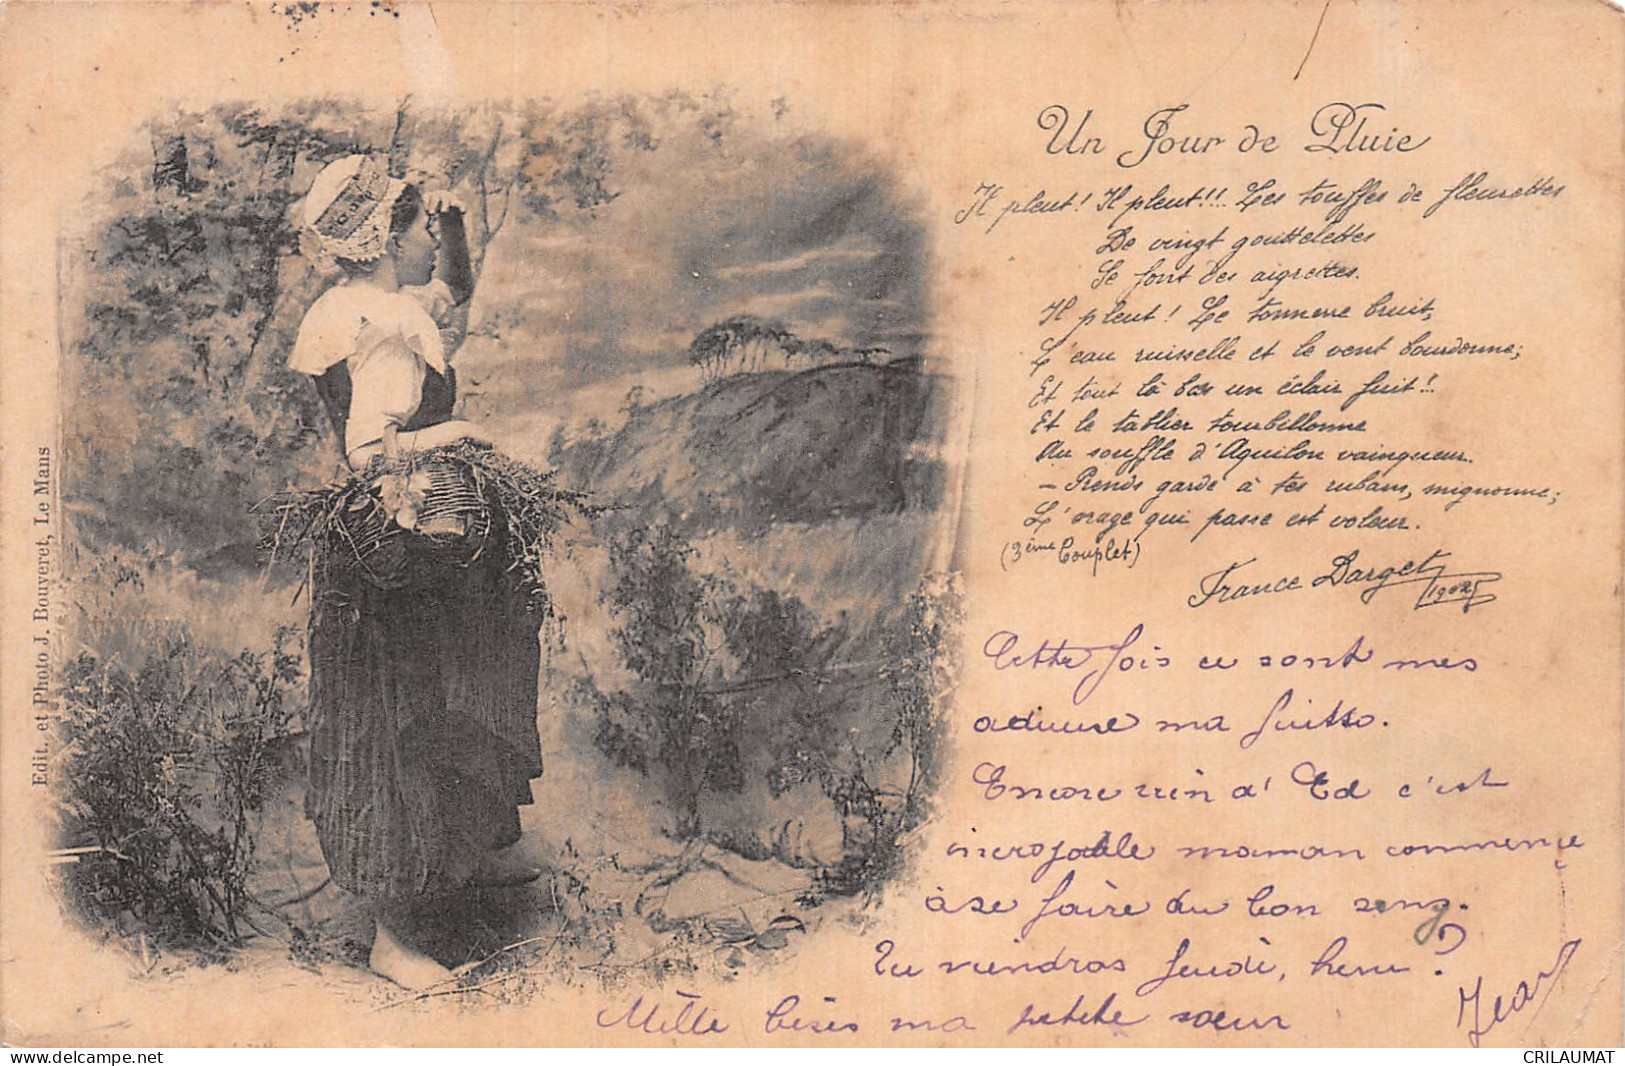 Un Jour de Pluie
Il pleut! Il pleut!!! Les touffes de fleurettes
De vingt gouttelettes
Se font des aigrettes.
Il pleut! Le tonnerre bruit,
L'eau ruisselle et le vent bourdonne;
Et tout là bas un éclair fuit!!
Et le tablier tourbillonne
Au souffle d'Aquilon vainqueur.
- Prends garde à tes rubans, mignonne;
L'orage qui passe est voleur.
(3ème Couplet)
France Darget
1902
Cette fois ce sont mes
ma
Encore rien d'Ed c'est
incroyable maman commence
à se faire du bon sang.
Tu viendras Jeudi, hein?
Mille bises ma petite sœur
Jean
Edit. et Photo J. Bouveret, Le Mans
CRILAUMAT